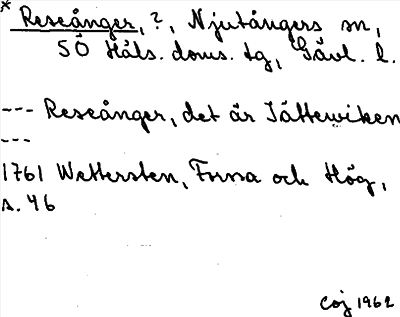 * Reseånger, ?, Njutångers sn,
SÖ Häls. doms. tg, Gävl. l.
--- Reseånger, det är Jättewiken
---
1761 Wettersten, Forssa och Hög,
s. 46
CoJ 1962